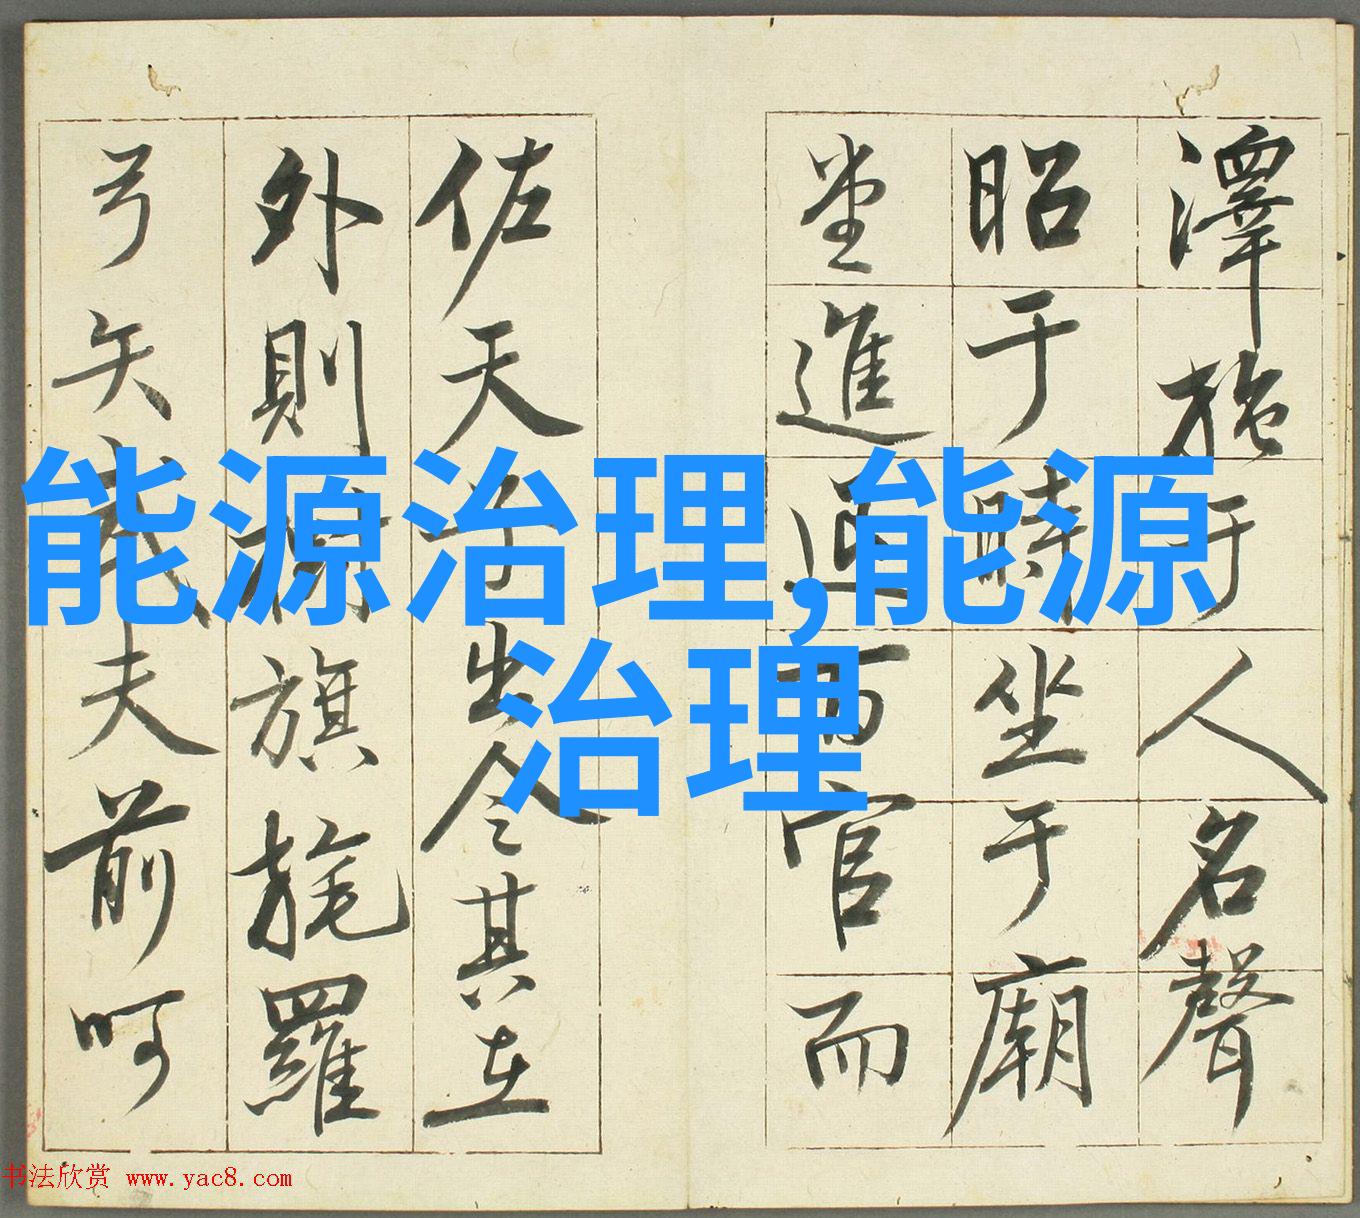 澤施于人名聲
昭于時坐于廟
堂進退百官而
佐天子出令其在
外則樹旗旄羅
弓矢武夫前呵
能源治理,能源
治理
书法欣赏 www.yac8.com